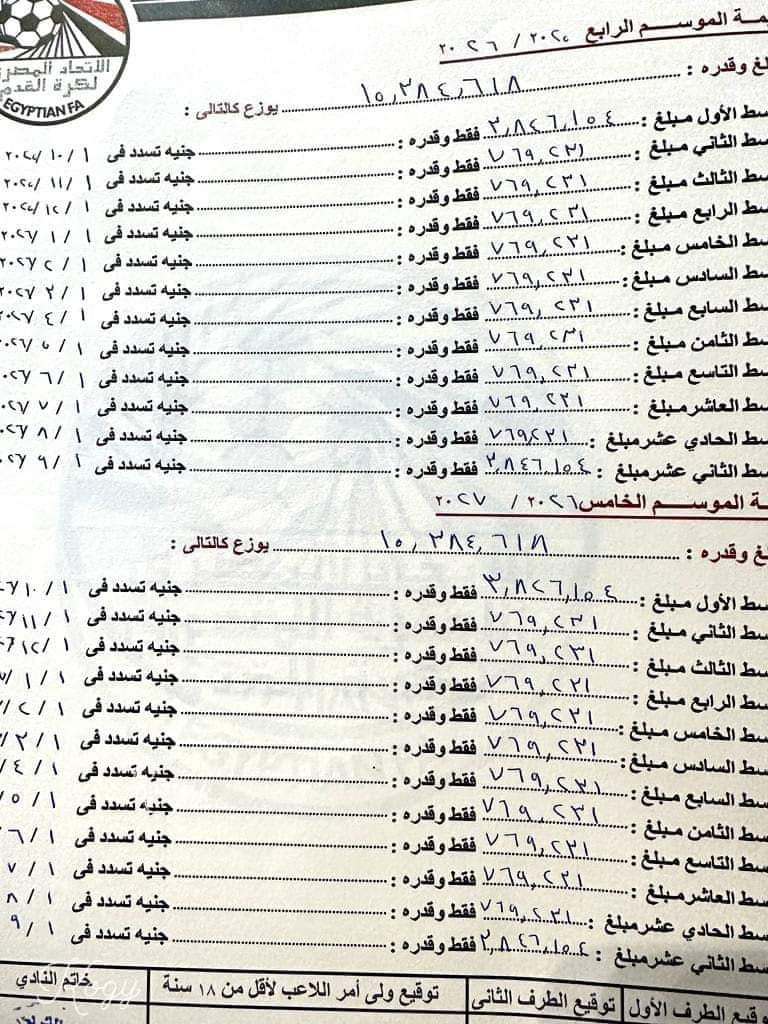 الاتحاد المصرى
لكرة القدم
EGYPTIAN FA
الموسم الرابع ٢٠٢٥ / ٢٠٢٦
وقدره : ١٥,٣٨٤,٦١٨ يوزع كالتالى :
الأول مبلغ : ٣,٨٤٦,١٥٤ فقط وقدره : جنيه تسدد فى ١ / ١٠ /
الثاني مبلغ : ٧٦٩,٢٣١ فقط وقدره : جنيه تسدد فى ١ / ١١ /
الثالث مبلغ : ٧٦٩,٢٣١ فقط وقدره : جنيه تسدد فى ١ / ١٢ /
الرابع مبلغ : ٧٦٩,٢٣١ فقط وقدره : جنيه تسدد فى ١ / ١ /
الخامس مبلغ : ٧٦٩,٢٣١ فقط وقدره : جنيه تسدد فى ١ / ٢ /
السادس مبلغ : ٧٦٩,٢٣١ فقط وقدره : جنيه تسدد فى ١ / ٣ /
السابع مبلغ : ٧٦٩,٢٣١ فقط وقدره : جنيه تسدد فى ١ / ٤ /
الثامن مبلغ : ٧٦٩,٢٣١ فقط وقدره : جنيه تسدد فى ١ / ٥ /
التاسع مبلغ : ٧٦٩,٢٣١ فقط وقدره : جنيه تسدد فى ١ / ٦ /
العاشر مبلغ : ٧٦٩,٢٣١ فقط وقدره : جنيه تسدد فى ١ / ٧ /
الحادي عشر مبلغ : ٧٦٩٢٣١ فقط وقدره : جنيه تسدد فى ١ / ٨ /
الثاني عشر مبلغ : ٣,٨٤٦,١٥٤ فقط وقدره : جنيه تسدد فى ١ / ٩ /
الموسم الخامس ٢٠٢٦ / ٢٠٢٧
وقدره : ١٥,٣٨٤,٦١٨ يوزع كالتالى :
الأول مبلغ : ٣,٨٤٦,١٥٤ فقط وقدره : جنيه تسدد فى ١ / ١٠ /
الثاني مبلغ : ٧٦٩,٢٣١ فقط وقدره : جنيه تسدد فى ١ / ١١ /
الثالث مبلغ : ٧٦٩,٢٣١ فقط وقدره : جنيه تسدد فى ١ / ١٢ /
الرابع مبلغ : ٧٦٩,٢٣١ فقط وقدره : جنيه تسدد فى ١ / ١ /
الخامس مبلغ : ٧٦٩,٢٣١ فقط وقدره : جنيه تسدد فى ١ / ٢ /
السادس مبلغ : ٧٦٩,٢٣١ فقط وقدره : جنيه تسدد فى ١ / ٣ /
السابع مبلغ : ٧٦٩,٢٣١ فقط وقدره : جنيه تسدد فى ١ / ٤ /
الثامن مبلغ : ٧٦٩,٢٣١ فقط وقدره : جنيه تسدد فى ١ / ٥ /
التاسع مبلغ : ٧٦٩,٢٣١ فقط وقدره : جنيه تسدد فى ١ / ٦
العاشر مبلغ : ٧٦٩,٢٣١ فقط وقدره : جنيه تسدد فى ١ / ٧
الحادي عشر مبلغ : ٧٦٩,٢٣١ فقط وقدره : جنيه تسدد فى ١ / ٨
الثاني عشر مبلغ : ٣,٨٤٦,١٥٤ فقط وقدره : جنيه تسدد فى ١ / ٩
توقيع الطرف الأول توقيع الطرف الثانى توقيع ولى أمر اللاعب لأقل من ١٨ سنة خاتم النادي